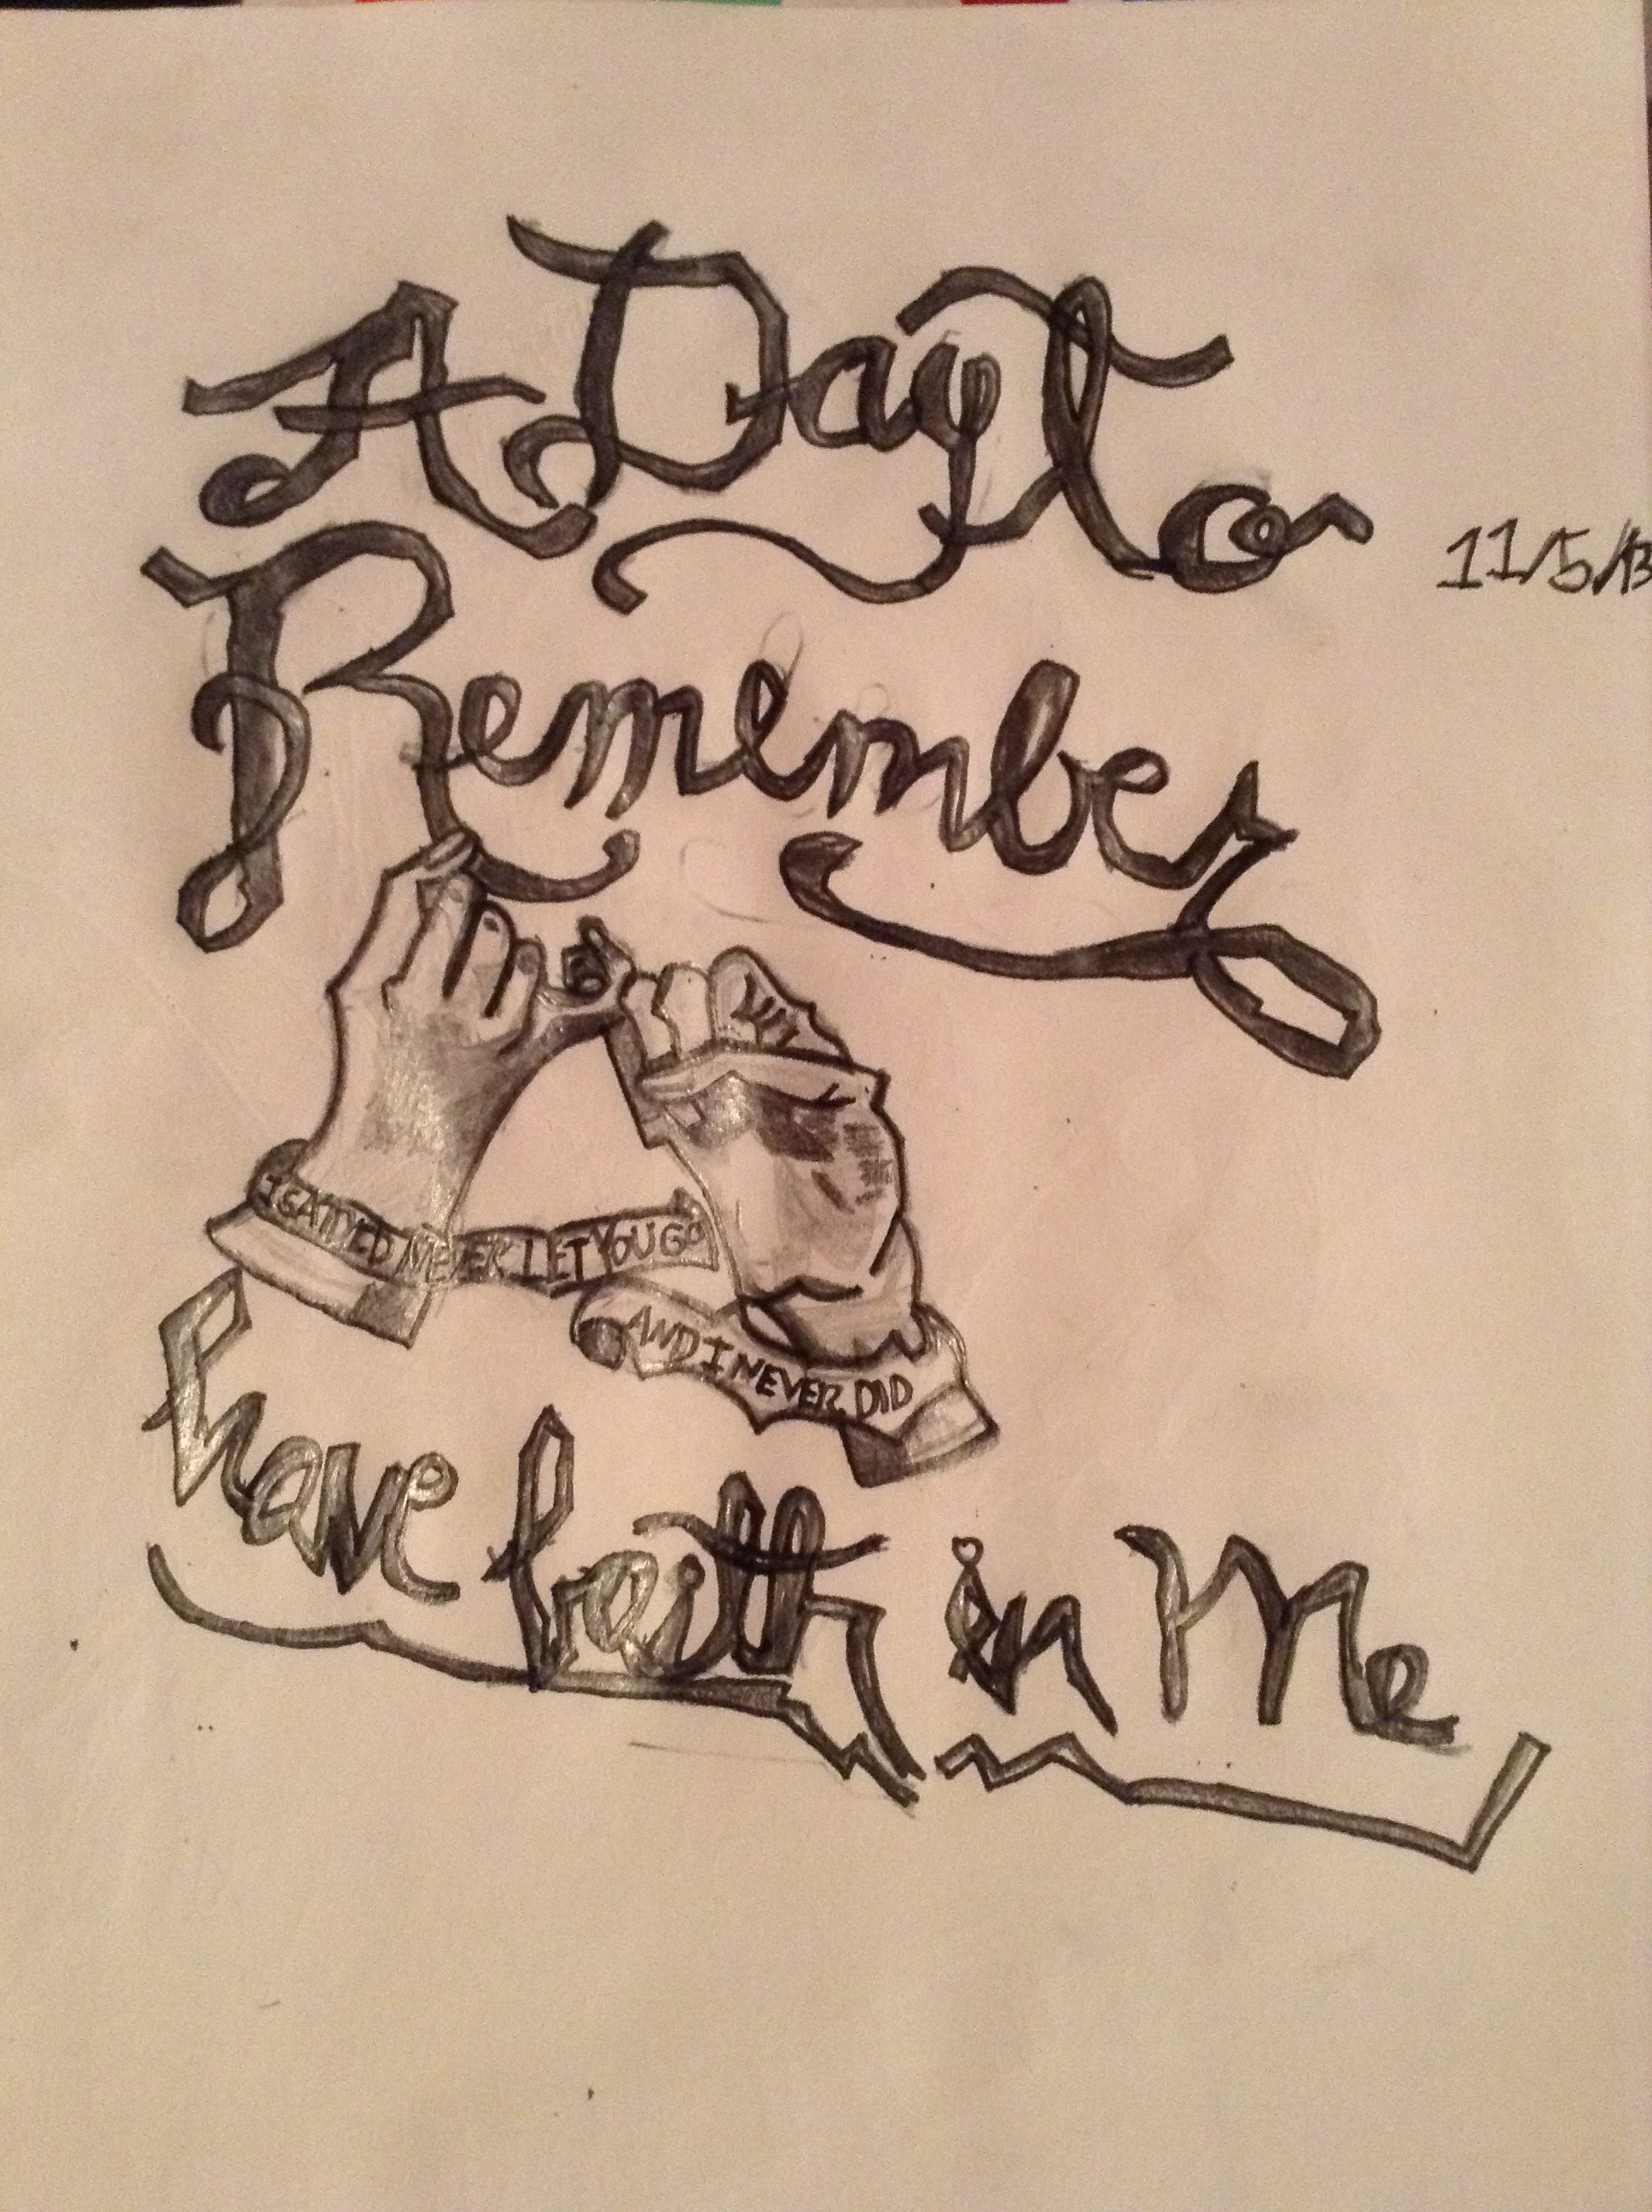 A Day to
11/5/13
Remember
I SAID I'D NEVER LET YOU GO
AND I NEVER DID
have faith in Me